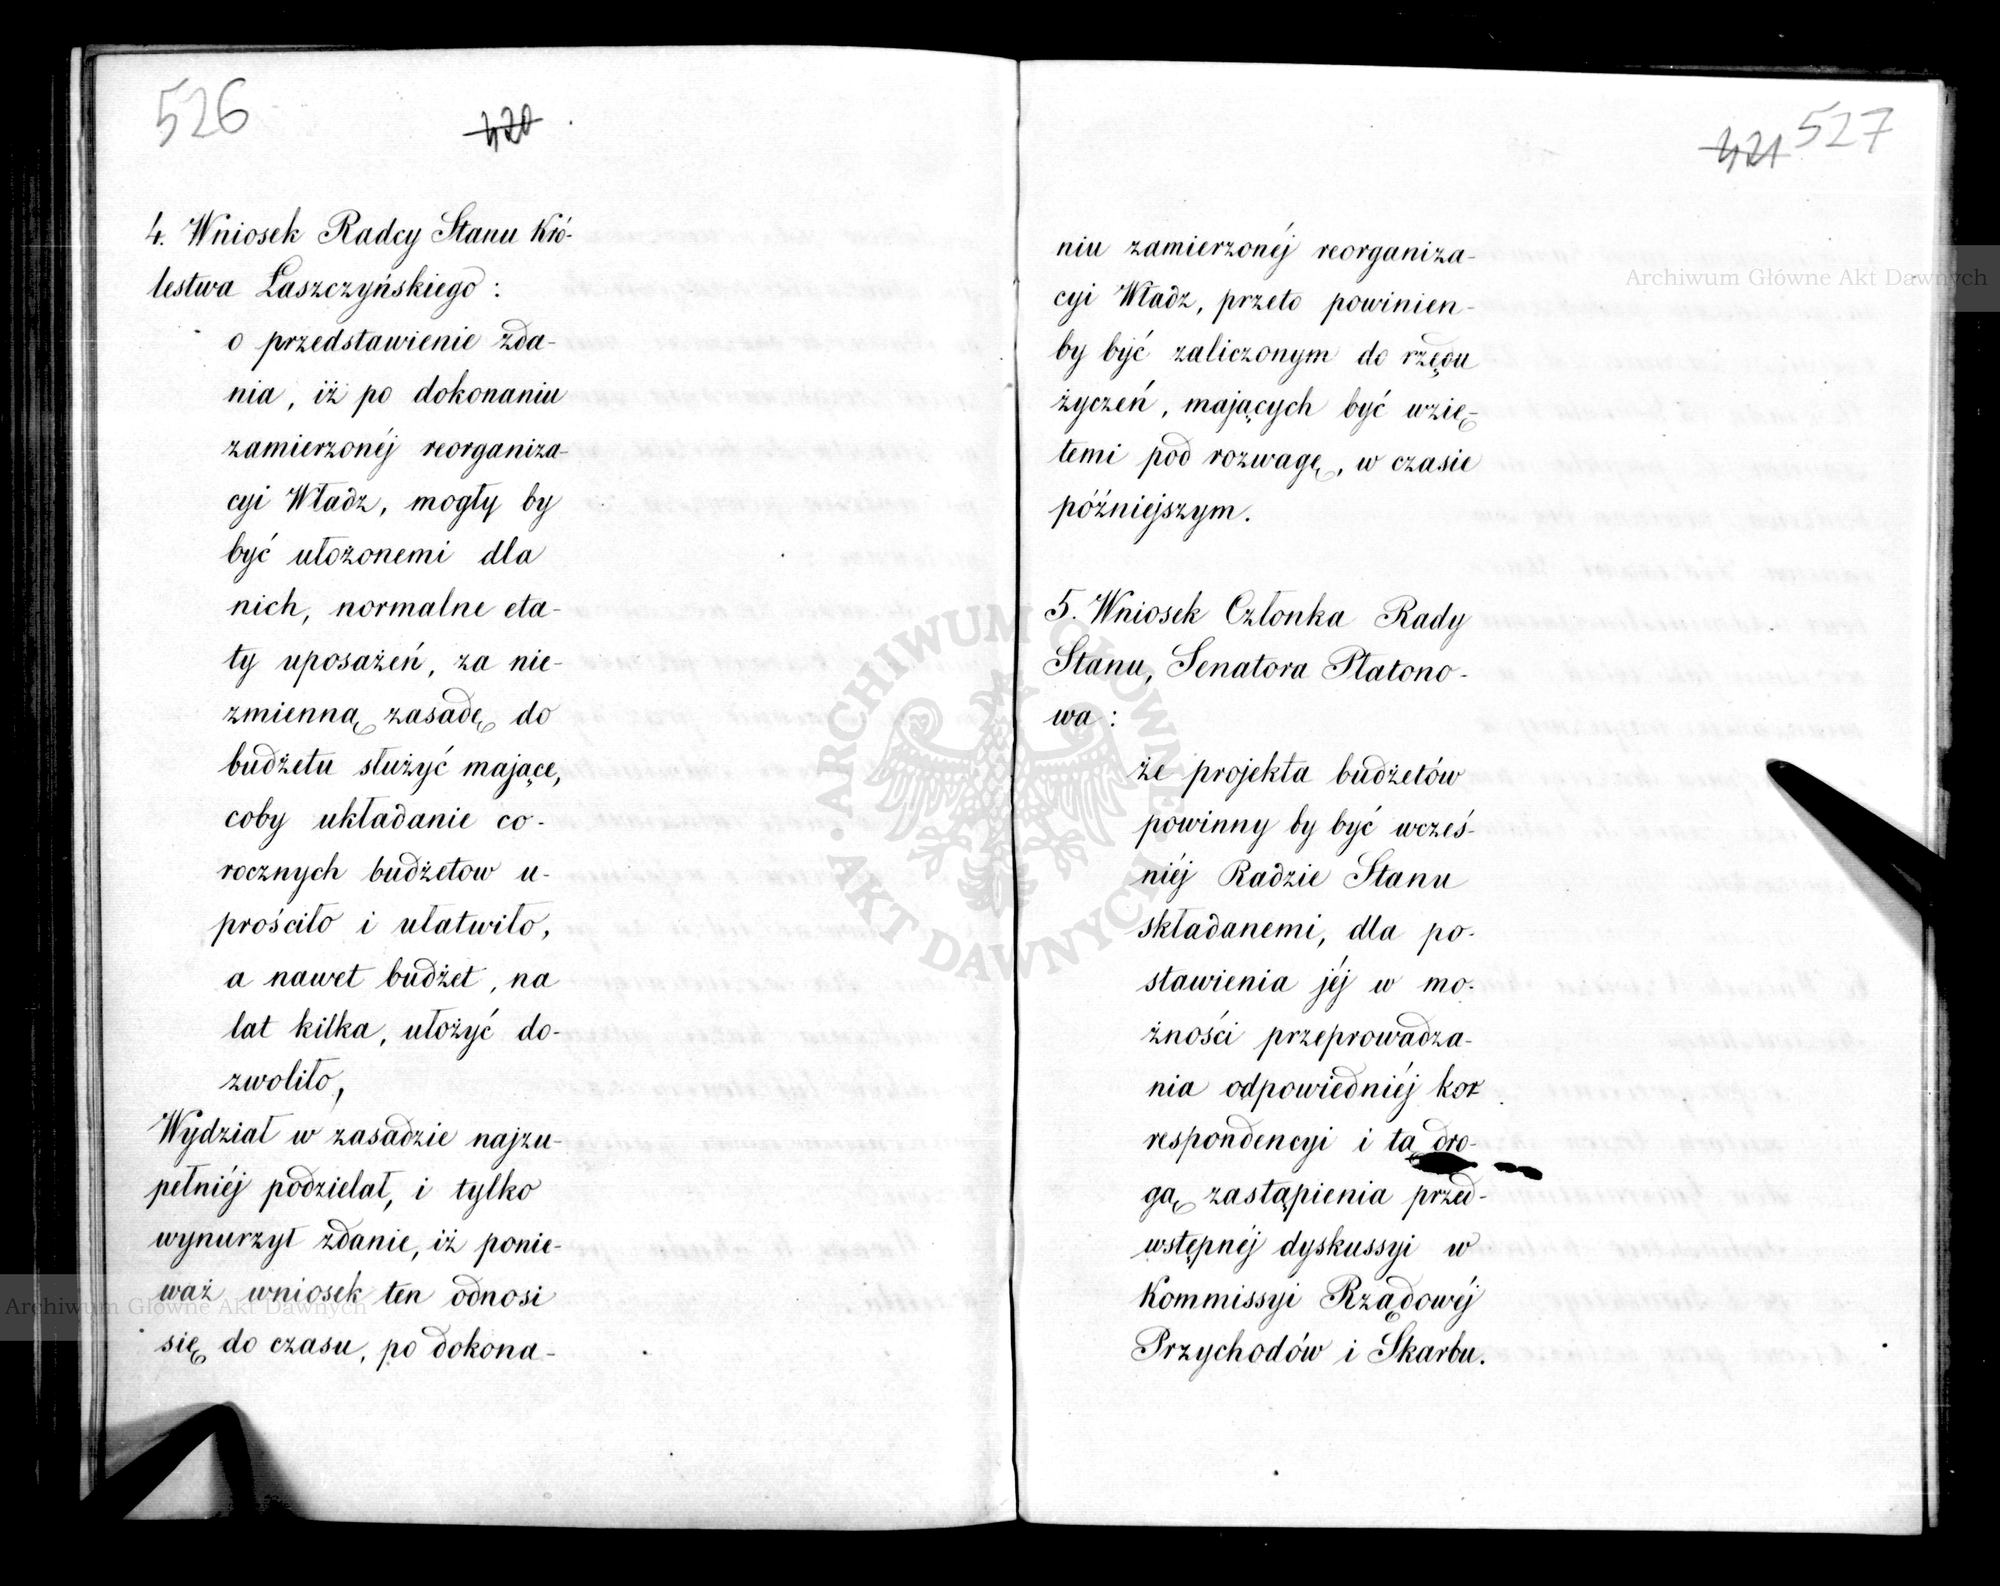 526
420
4. Wniosek Radcy Stanu Kró-
lestwa Łaszczyńskiego:
o przedstawienie zda-
nia, iż po dokonaniu
zamierzonéj reorganiza-
cyi Władz, mogły by
być ułożonemi dla
nich, normalne eta-
ty uposażeń, za nie-
zmienną zasadę do
budżetu służyć mające,
coby układanie co-
rocznych budżetow u-
prościło i ułatwiło,
a nawet budżet, na
lat kilka, ułożyć do-
zwoliło,
Wydział w zasadzie najzu-
pełniéj podzielał, i tylko
wynurzył zdanie, iż ponie-
waż wniosek ten odnosi
się do czasu, po dokona-
421 527
niu zamierzonéj reorganiza-
cyi Władz, przeto powinien-
by być zaliczonym do rzędu
życzeń, mających być wzię-
temi pod rozwagę, w czasie
późniejszym.
5. Wniosek Członka Rady
Stanu, Senatora Płatono-
wa:
że projekta budżetów
powinny by być wcześ-
niéj Radzie Stanu
składanemi, dla po-
stawienia jéj w mo-
żności przeprowadza-
nia odpowiedniéj kor
respondencyi i tą dro-
gą zastąpienia przed-
wstępnéj dyskussyi w
Kommissyi Rządowéj
Przychodów i Skarbu.
Archiwum Główne Akt Dawnych
Archiwum Główne Akt Dawnych
ARCHIWUM GŁÓWNE AKT DAWNYCH